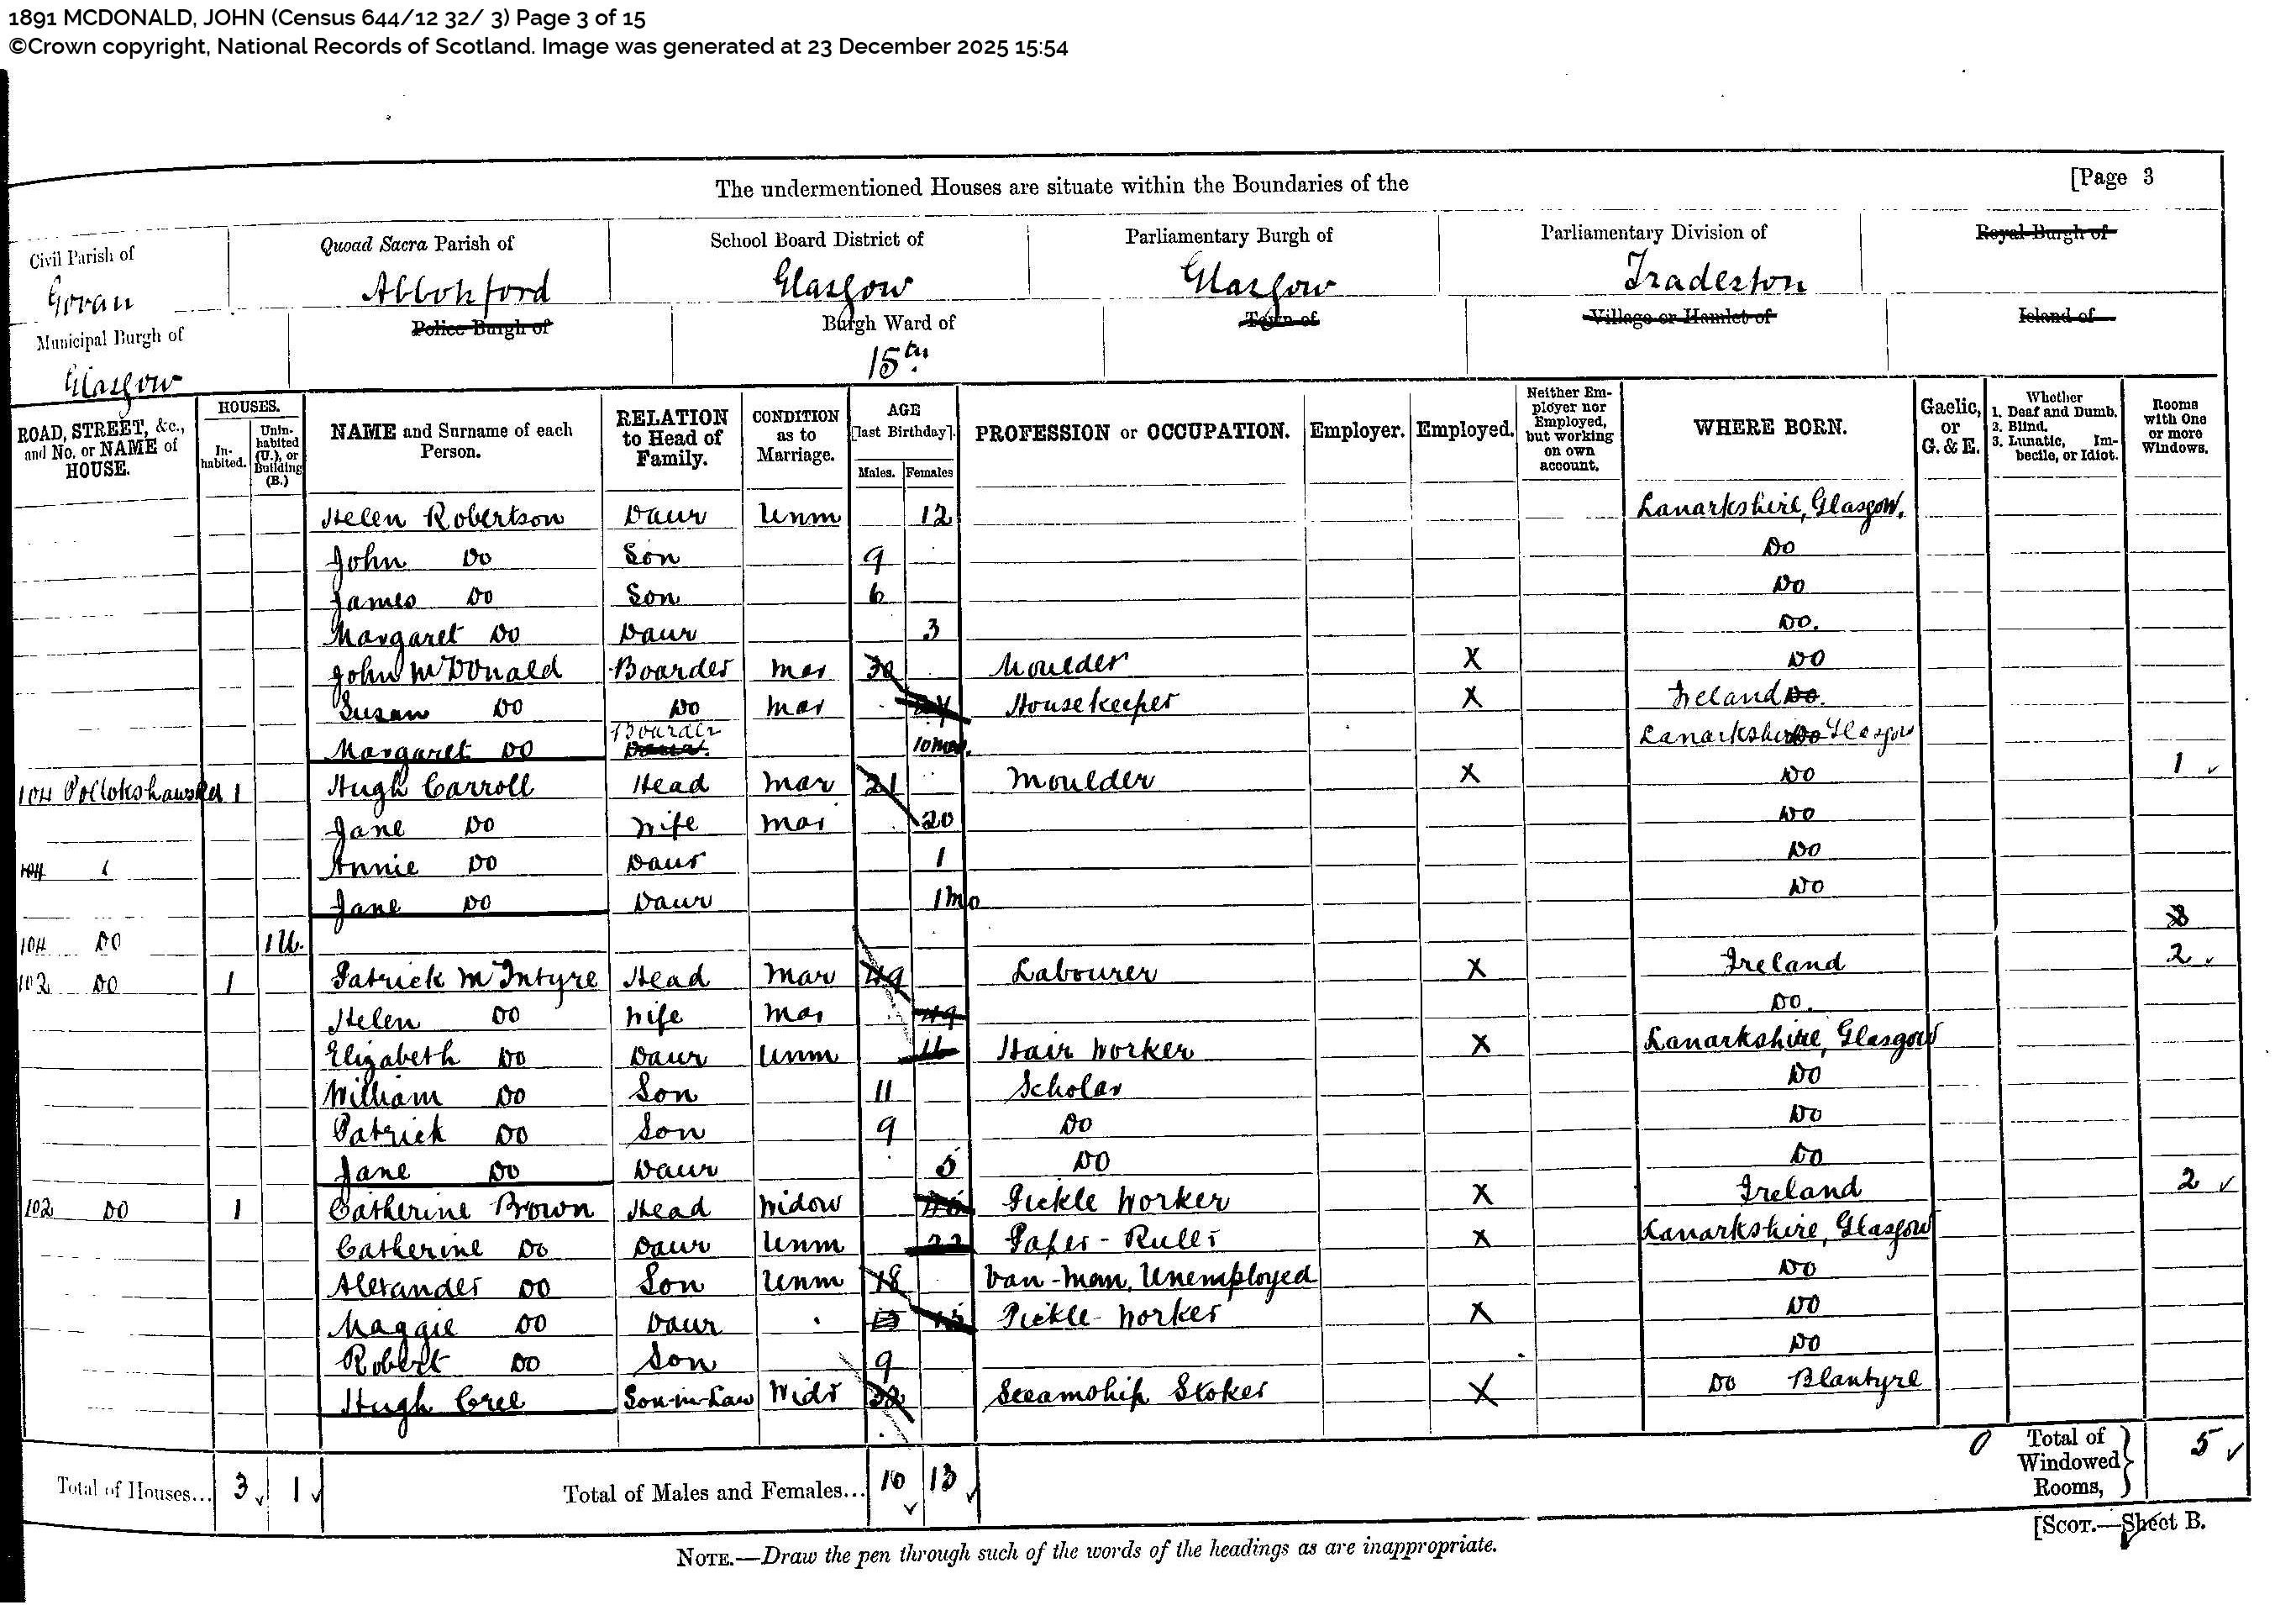 1891 MCDONALD, JOHN (Census 644/12 32/ 3) Page 3 of 15
©Crown copyright, National Records of Scotland. Image was generated at 23 December 2025 15:54
The undermentioned Houses are situate within the Boundaries of the [Page 3
Civil Parish of Quoad Sacra Parish of School Board District of Parliamentary Burgh of Parliamentary Division of Royal Burgh of
Govan Abbotsford Glasgow Glasgow Tradeston
Municipal Burgh of Police Burgh of Burgh Ward of Town of Village or Hamlet of Island of
Glasgow 15th.
ROAD, STREET, &c., and No. or NAME of HOUSE. HOUSES. Inhabited. Uninhabited (U.), or Building (B.) NAME and Surname of each Person. RELATION to Head of Family. CONDITION as to Marriage. AGE [last Birthday]. Males. Females PROFESSION or OCCUPATION. Employer. Employed. Neither Employer nor Employed, but working on own account. WHERE BORN. Gaelic, or G. & E. Whether 1. Deaf and Dumb. 2. Blind. 3. Lunatic, Imbecile, or Idiot. Rooms with One or more Windows.
Helen Robertson Daur Unm 12 Lanarkshire, Glasgow.
John Do Son 9 Do
James Do Son 6 Do
Margaret Do Daur 3 Do.
John McDonald Boarder Mar 30 Moulder X Do
Susan Do Do Mar Housekeeper X Ireland Do.
Margaret Do Boarder 10 mos. Lanarkshire Do Glasgow
104 Pollokshaws Rd 1 Hugh Carroll Head Mar 21 Moulder X Do 1 ✓
Jane Do Wife Mar 20 Do
104 Annie Do Daur 1 Do
Jane Do Daur 1 mo Do
104 Do 1 U.
102 Do 1 Patrick McIntyre Head Mar 49 Labourer X Ireland 2 ✓
Helen Do Wife Mar 49 Do.
Elizabeth Do Daur Unm 16 Hair Worker X Lanarkshire, Glasgow
William Do Son 11 Scholar Do
Patrick Do Son 9 Do Do
Jane Do Daur 5 Do Do
102 Do 1 Catherine Brown Head Widow Pickle Worker X Ireland 2 ✓
Catherine Do Daur Unm 22 Paper-Ruler X Lanarkshire, Glasgow
Alexander Do Son Unm 18 Van-man, Unemployed Do
Maggie Do Daur 15 Pickle-Worker X Do
Robert Do Son 9 Do
Hugh Cree Son-in-Law Widr 32 Steamship Stoker X Do Blantyre
Total of Houses... 3 ✓ 1 ✓ Total of Males and Females... 10 ✓ 13 ✓ 0 Total of Windowed Rooms, 5 ✓
[SCOT.—Sheet B.
NOTE.—Draw the pen through such of the words of the headings as are inappropriate.